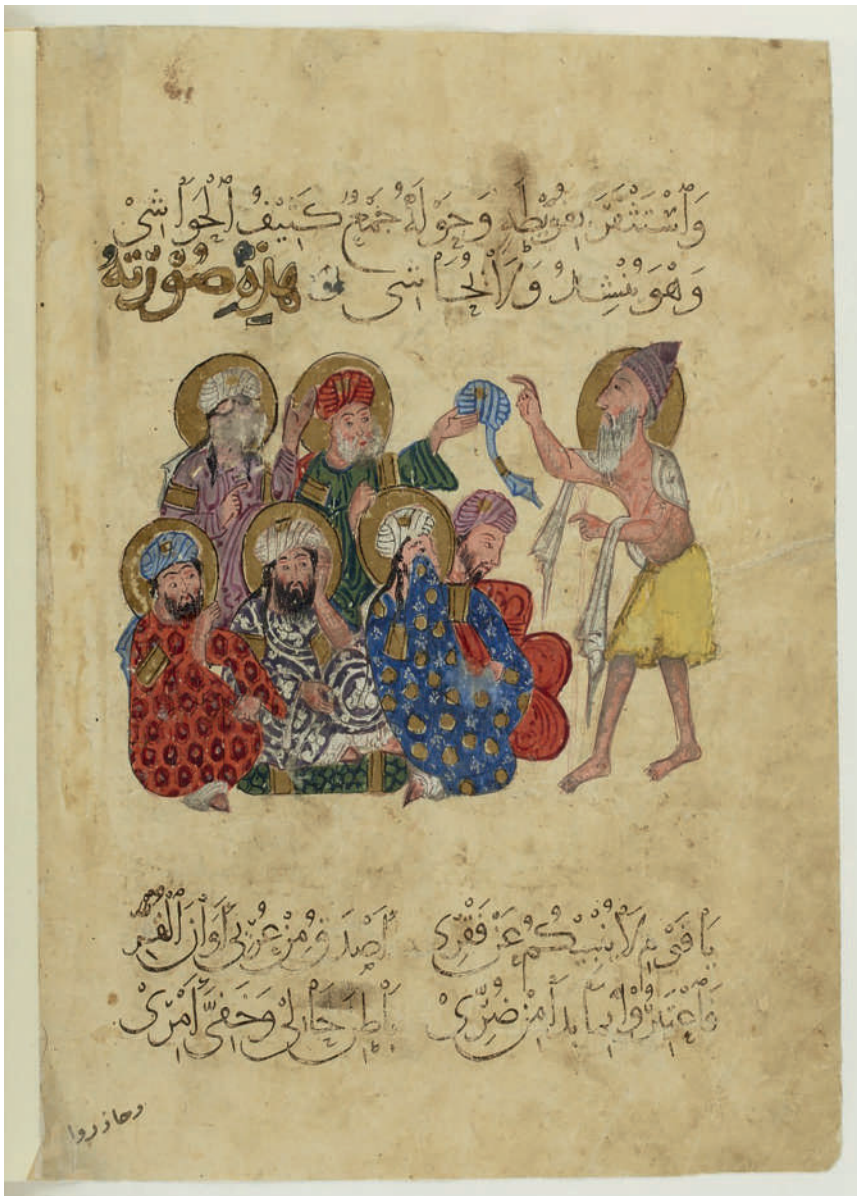 واستثفر بفويطة وحوله جمع كثيف الحواشي
وهو ينشد ولا يحاشي هذه صورته
يا قوم لا ينبيكم عن فقري اصدق من عريي اوان القر
فاعتبروا بما بدا من ضري باطن حالي وخفي امري
وحاذروا